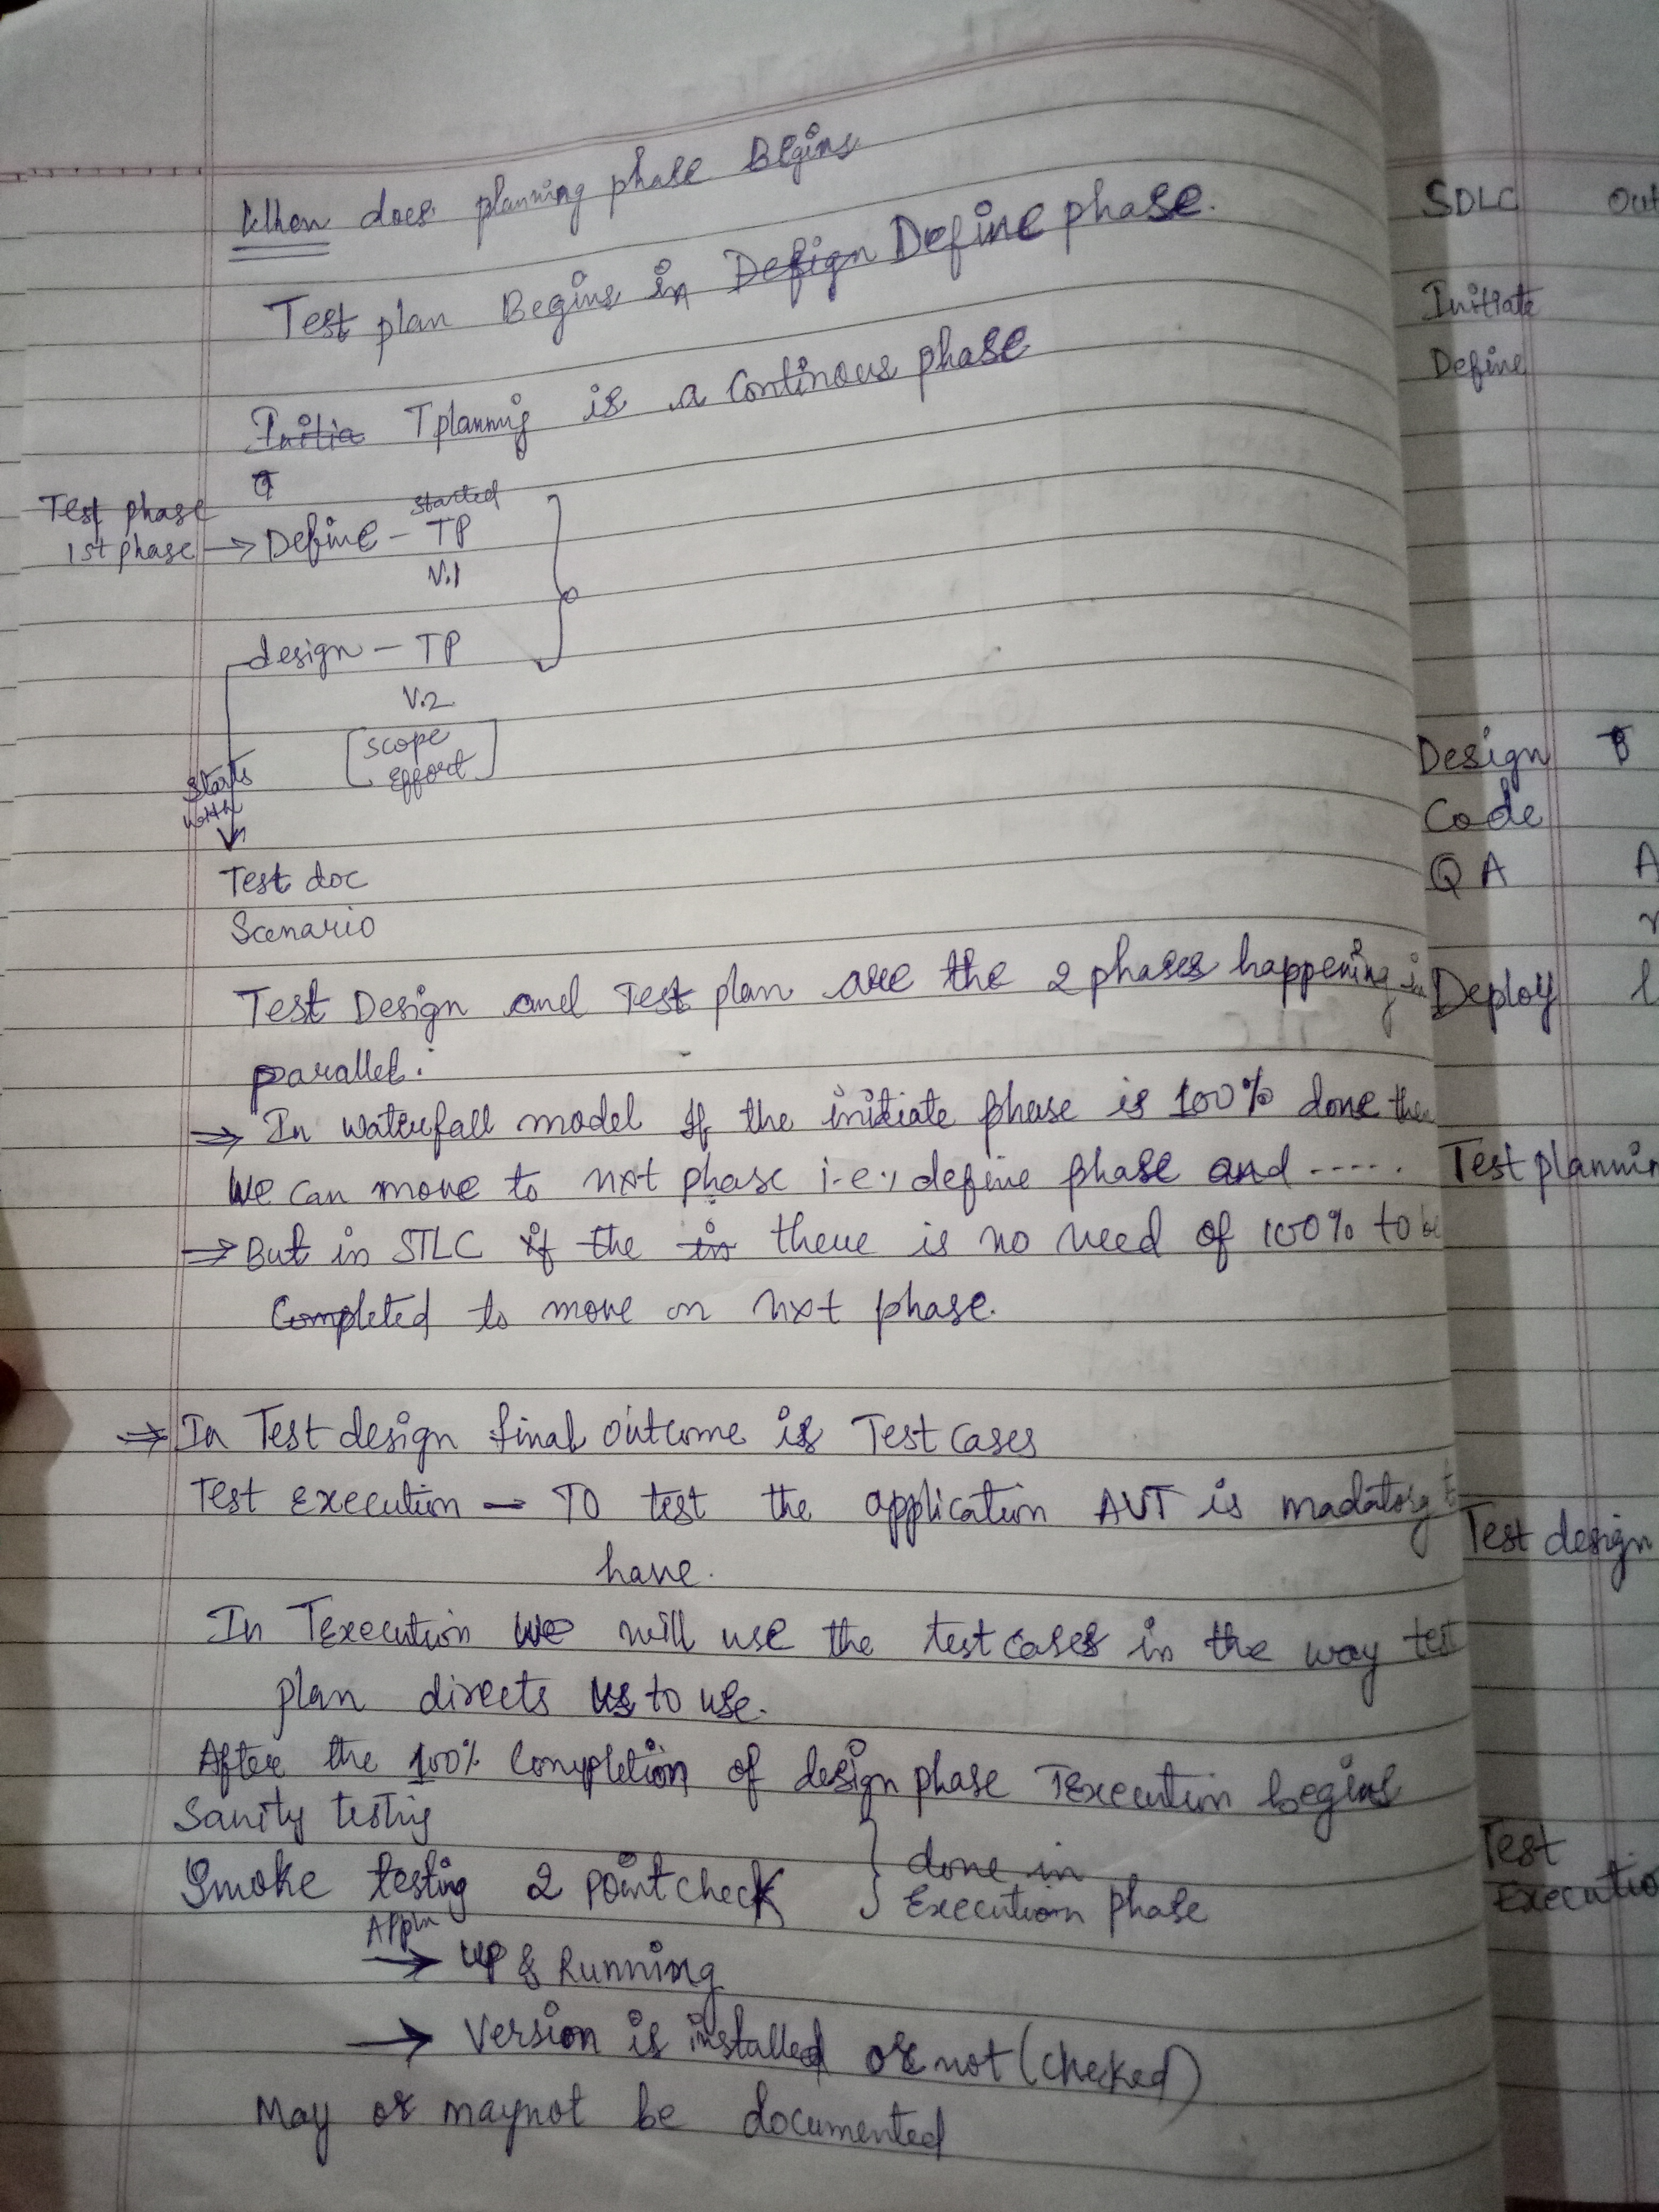 When does planning phase Begins
Test plan Begins in Design Define phase.
Initia Tplannig is a Continous phase
T
Test phase
1st phase → Define - started TP
V.1
design - TP
V.2
[Scope
Effort]
Starts
with
Test doc
Scenario
Test Design and Test plan are the 2 phases happening in
parallel.
⇒ In waterfall model If the initiate phase is 100% done then
We can move to nxt phase i.e., define phase and .....
⇒ But in STLC if the in there is no need of 100% to be
Completed to move on nxt phase.
⇒ In Test design final outcome is Test Cases
Test execution - To test the application AUT is madatory to
have.
In Texecution we will use the test cases in the way test
plan directs us to use.
After the 100% Completion of design phase Texecution begins
Sanity testig
Smoke testing 2 point check } done in
Execution phase
Appln
→ up & Running
→ Version is installed or not (checked)
May or maynot be documented
SDLC Out
Initiate
Define
Design
Code
QA A
Deploy
Test plannin
Test design
Test
Executio